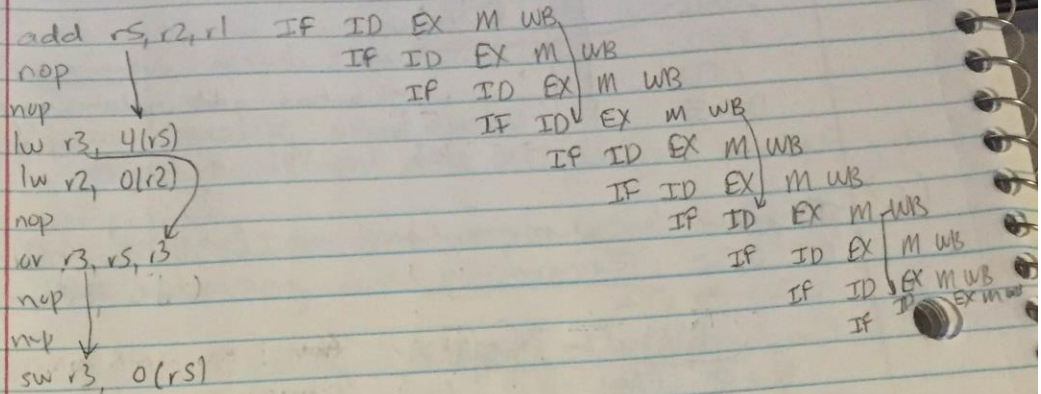 add r5, r2, r1 IF ID EX M WB
nop IF ID EX M WB
nop IF ID EX M WB
lw r3, 4(r5) IF ID EX M WB
lw r2, 0(r2) IF ID EX M WB
nop IF ID EX M WB
or r3, r5, r3 IF ID EX M WB
nop IF ID EX M WB
nop IF ID EX M WB
sw r3, 0(r5) IF ID EX M WB